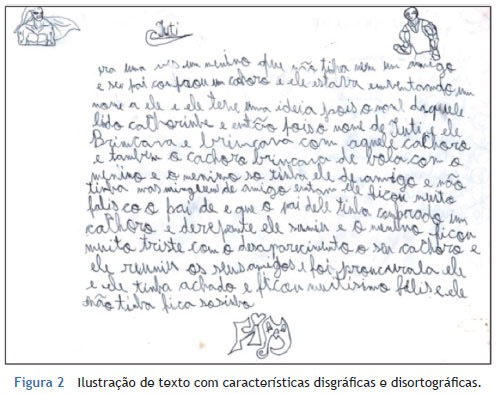 Tuti
era uma vis um menino que não tinha nem um amigo
e seu pai conpaou um cahoro e ele estava enventando um
nome a ele e ele teve uma ideia pois o nome daquele
lido calhorinho e então pois o nome de Tuti, ele
Brincava e brincava com aquele calhoro
e tanbem o cachoro brincava de bola con o
menino e o menino so tinha ele de amigo e não
tinha mas mingueun de amigo entam ele ficou muito
falis co o pai de e que o pai dele tinha comprado um
calhoro e derepente ele sumiu e o menino ficou
muito triste com o desaparecimento o seu cachoro e
ele reuniu os seus amigos e foi procurala ele
e ele tinha achado e ficou muitisimo felis e ele
não tinha fica sosinho
FiM
Figura 2 Ilustração de texto com características disgráficas e disortográficas.